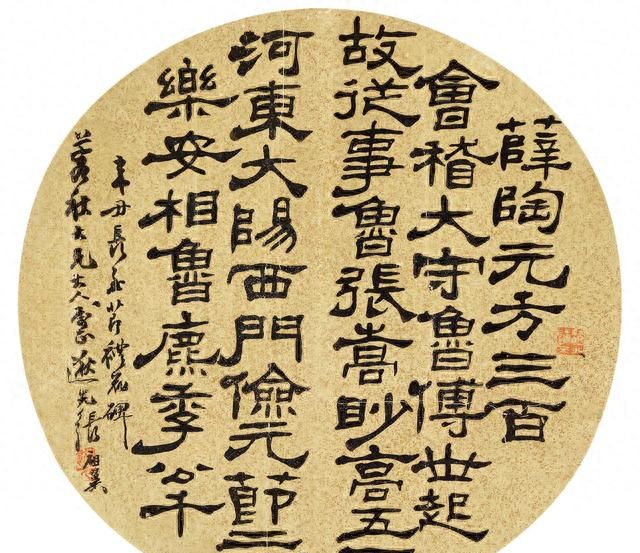 薛陶元方三百
會稽大守魯傅世起
故從事魯張嵩眇高五
河東大陽西門儉元節二
樂安相魯麃季公千
辛丑長至節禮器碑
秋大兄大人正逖先張祖翼